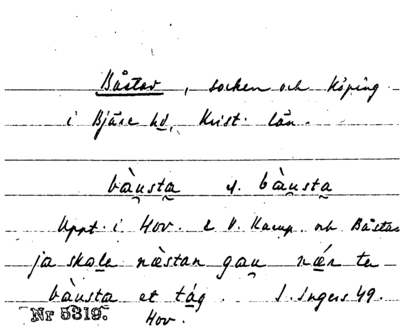 Båstad, socken och köping
i Bjäre hd, Krist. län.
bàu̯sta l. bàu̯sta
Uppt. i Hov. & V. Karup och Båstad
ja skole næstan gau̯ nær te
bàu̯sta et tåg. I. Ingers 49.
Nr 5319. Hov.